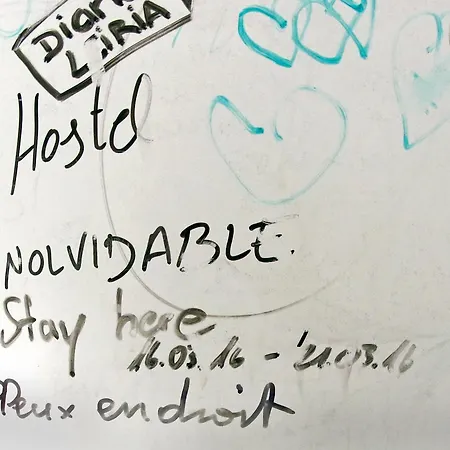 LIRIA
Hostel
NOLVIDABLE.
Stay here
16.03.16 - 21.03.16
Peux endroit